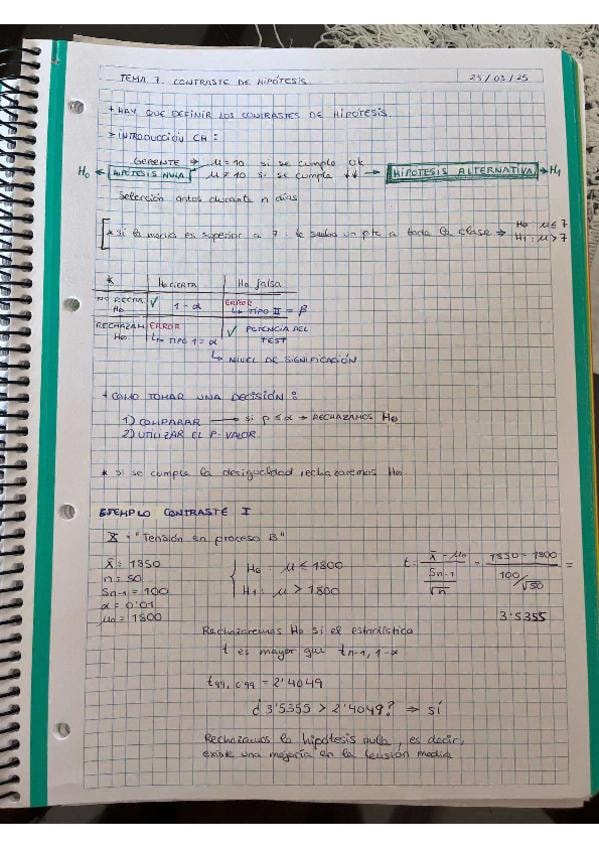 TEMA 7. CONTRASTE DE HIPÓTESIS. 25/03/25
+ HAY QUE DEFINIR LOS CONTRASTES DE HIPÓTESIS.
> INTRODUCCIÓN CH:
GERENTE → μ = 10 si se cumple ok
H₀ ← HIPÓTESIS NULA μ ≠ 10 si se cumple ↓↓ → HIPÓTESIS ALTERNATIVA → H₁
Selección antos durante n días
* si la media es superior a 7. le un pte a toda clase → H₀: μ ≤ 7
H₁: μ > 7
* H₀ cierta H₀ falsa
NO RECHA. H₀ ✓ 1 - α ERROR ↳ TIPO II = β
RECHAZAM H₀. ERROR ↳ TIPO 1 = α ✓ POTENCIA DEL TEST
↳ NIVEL DE SIGNIFICACIÓN
+ COMO TOMAR UNA DECISIÓN:
1) COMPARAR → si p ≤ α → RECHAZAMOS H₀
2) UTILIZAR EL P-VALOR
* si se cumple la desigualdad rechazaremos H₀.
EJEMPLO CONTRASTE I
X = "Tensión en proceso B"
x̄ = 1850
n = 50
Sn-1 = 100
α = 0'01
μ₀ = 1800
{ H₀: μ ≤ 1800
H₁: μ > 1800
t = (x̄ - μ₀) / (Sn-1/√n) = (1850 - 1800) / (100/√50) =
3'5355
Rechazaremos H₀ si el estadístico
t es mayor que tn-1, 1-α
t49, 0'99 = 2'4049
¿3'5355 > 2'4049? ⇒ sí
Rechazamos la hipótesis nula, es decir,
existe una mejoría en la tensión media